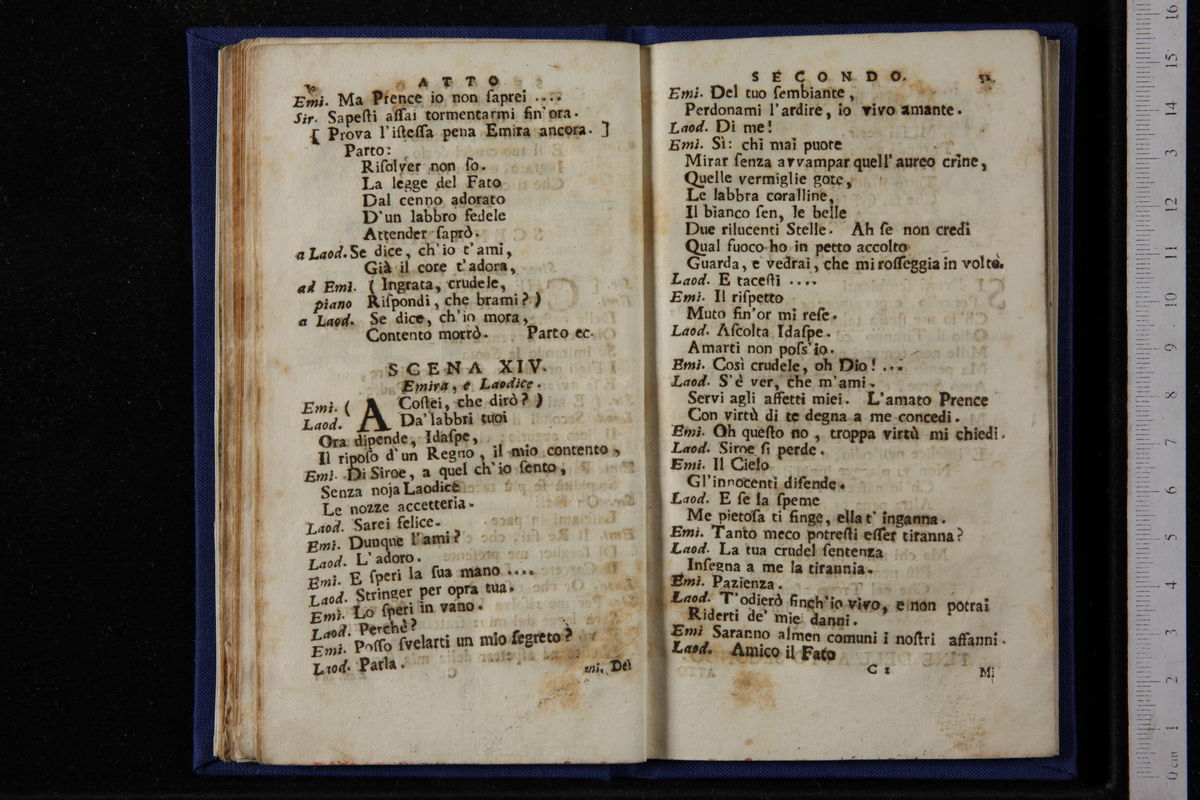 ATTO
Emi. Ma Prence io non saprei ....
Sir. Sapesti assai tormentarmi fin'ora.
[ Prova l'istessa pena Emira ancora. ]
Parto:
Risolver non so.
La legge del Fato
Dal cenno adorato
D'un labbro fedele
Attender saprò.
a Laod. Se dice, ch'io t'ami,
Già il core t'adora,
ad Emi. ( Ingrata, crudele,
piano Rispondi, che brami? )
a Laod. Se dice, ch'io mora,
Contento morrò. Parto ec.
SCENA XIV.
Emira, e Laodice.
Emi. ( A Costei, che dirò? )
Laod. Da'labbri tuoi
Ora dipende, Idaspe,
Il riposo d'un Regno, il mio contento,
Emi. Di Siroe, a quel ch'io sento,
Senza noja Laodice
Le nozze accetteria.
Laod. Sarei felice.
Emi. Dunque l'ami?
Laod. L'adoro.
Emi. E speri la sua mano ....
Laod. Stringer per opra tua.
Emi. Lo speri in vano.
Laod. Perchè?
Emi. Posso svelarti un mio segreto?
Laod. Parla.
mi. Del
SECONDO.
Emi. Del tuo sembiante,
Perdonami l'ardire, io vivo amante.
Laod. Di me!
Emi. Sì: chi mai puote
Mirar senza avvampar quell'aureo crine,
Quelle vermiglie gote,
Le labbra coralline,
Il bianco sen, le belle
Due rilucenti Stelle. Ah se non credi
Qual fuoco ho in petto accolto
Guarda, e vedrai, che mi rosseggia in volto.
Laod. E tacesti ....
Emi. Il rispetto
Muto fin'or mi rese.
Laod. Ascolta Idaspe.
Amarti non poss'io.
Emi. Così crudele, oh Dio! ...
Laod. S'è ver, che m'ami.
Servi agli affetti miei. L'amato Prence
Con virtù di te degna a me concedi.
Emi. Oh questo no, troppa virtù mi chiedi.
Laod. Siroe si perde.
Emi. Il Cielo
Gl'innocenti difende.
Laod. E se la speme
Me pietosa ti finge, ella t'inganna.
Emi. Tanto meco potresti esser tiranna?
Laod. La tua crudel sentenza
Insegna a me la tirannia.
Emi. Pazienza.
Laod. T'odierò finch'io vivo, e non potrai
Riderti de' mie danni.
Emi Saranno almen comuni i nostri affanni.
Laod. Amico il Fato
C 2 Mi
0 cm 1 2 3 4 5 6 7 8 9 10 11 12 13 14 15 16